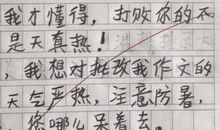 我才懂得，打败你的不
是天真热！
，我想对批改我作文的
天气严热，注意防暑，
，你哪儿呆着去。